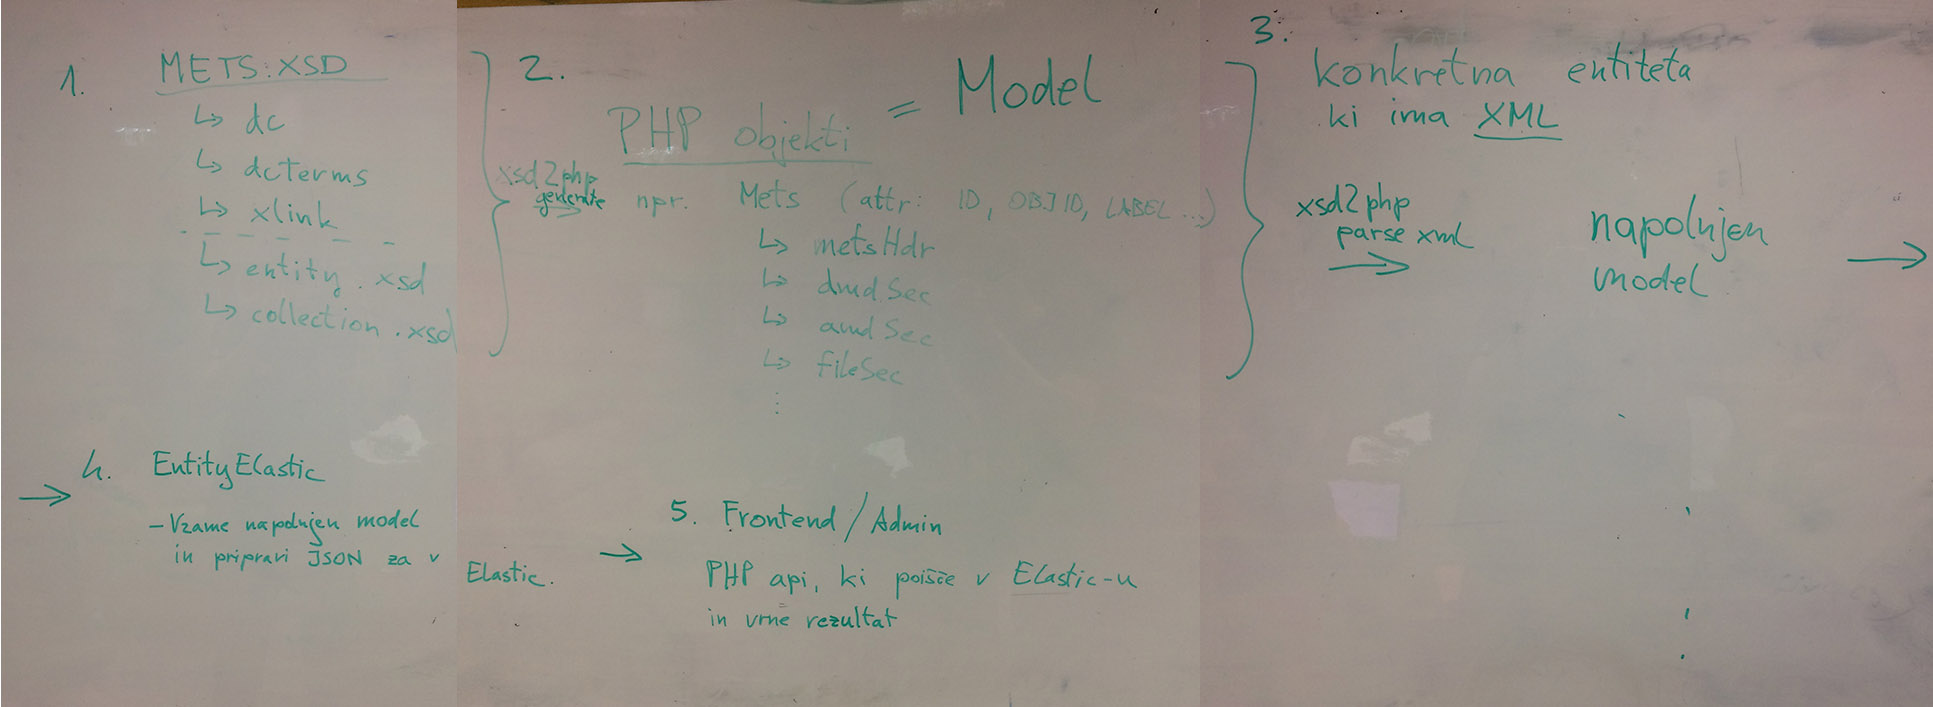 1. METS:XSD
↳ dc
↳ dcterms
↳ xlink
↳ entity.xsd
↳ collection.xsd
2.
PHP objekti = Model
xsd2php
generate
npr. Mets (attr: ID, OBJID, LABEL ...)
↳ metsHdr
↳ dmdSec
↳ amdSec
↳ fileSec
⋮
3.
konkretna entiteta
ki ima XML
xsd2php
parse xml
→
napolnjen
model
→
→ 4. EntityElastic
- Vzame napolnjen model
in pripravi JSON za v Elastic.
→ 5. Frontend / Admin
PHP api, ki poišče v Elastic-u
in vrne rezultat